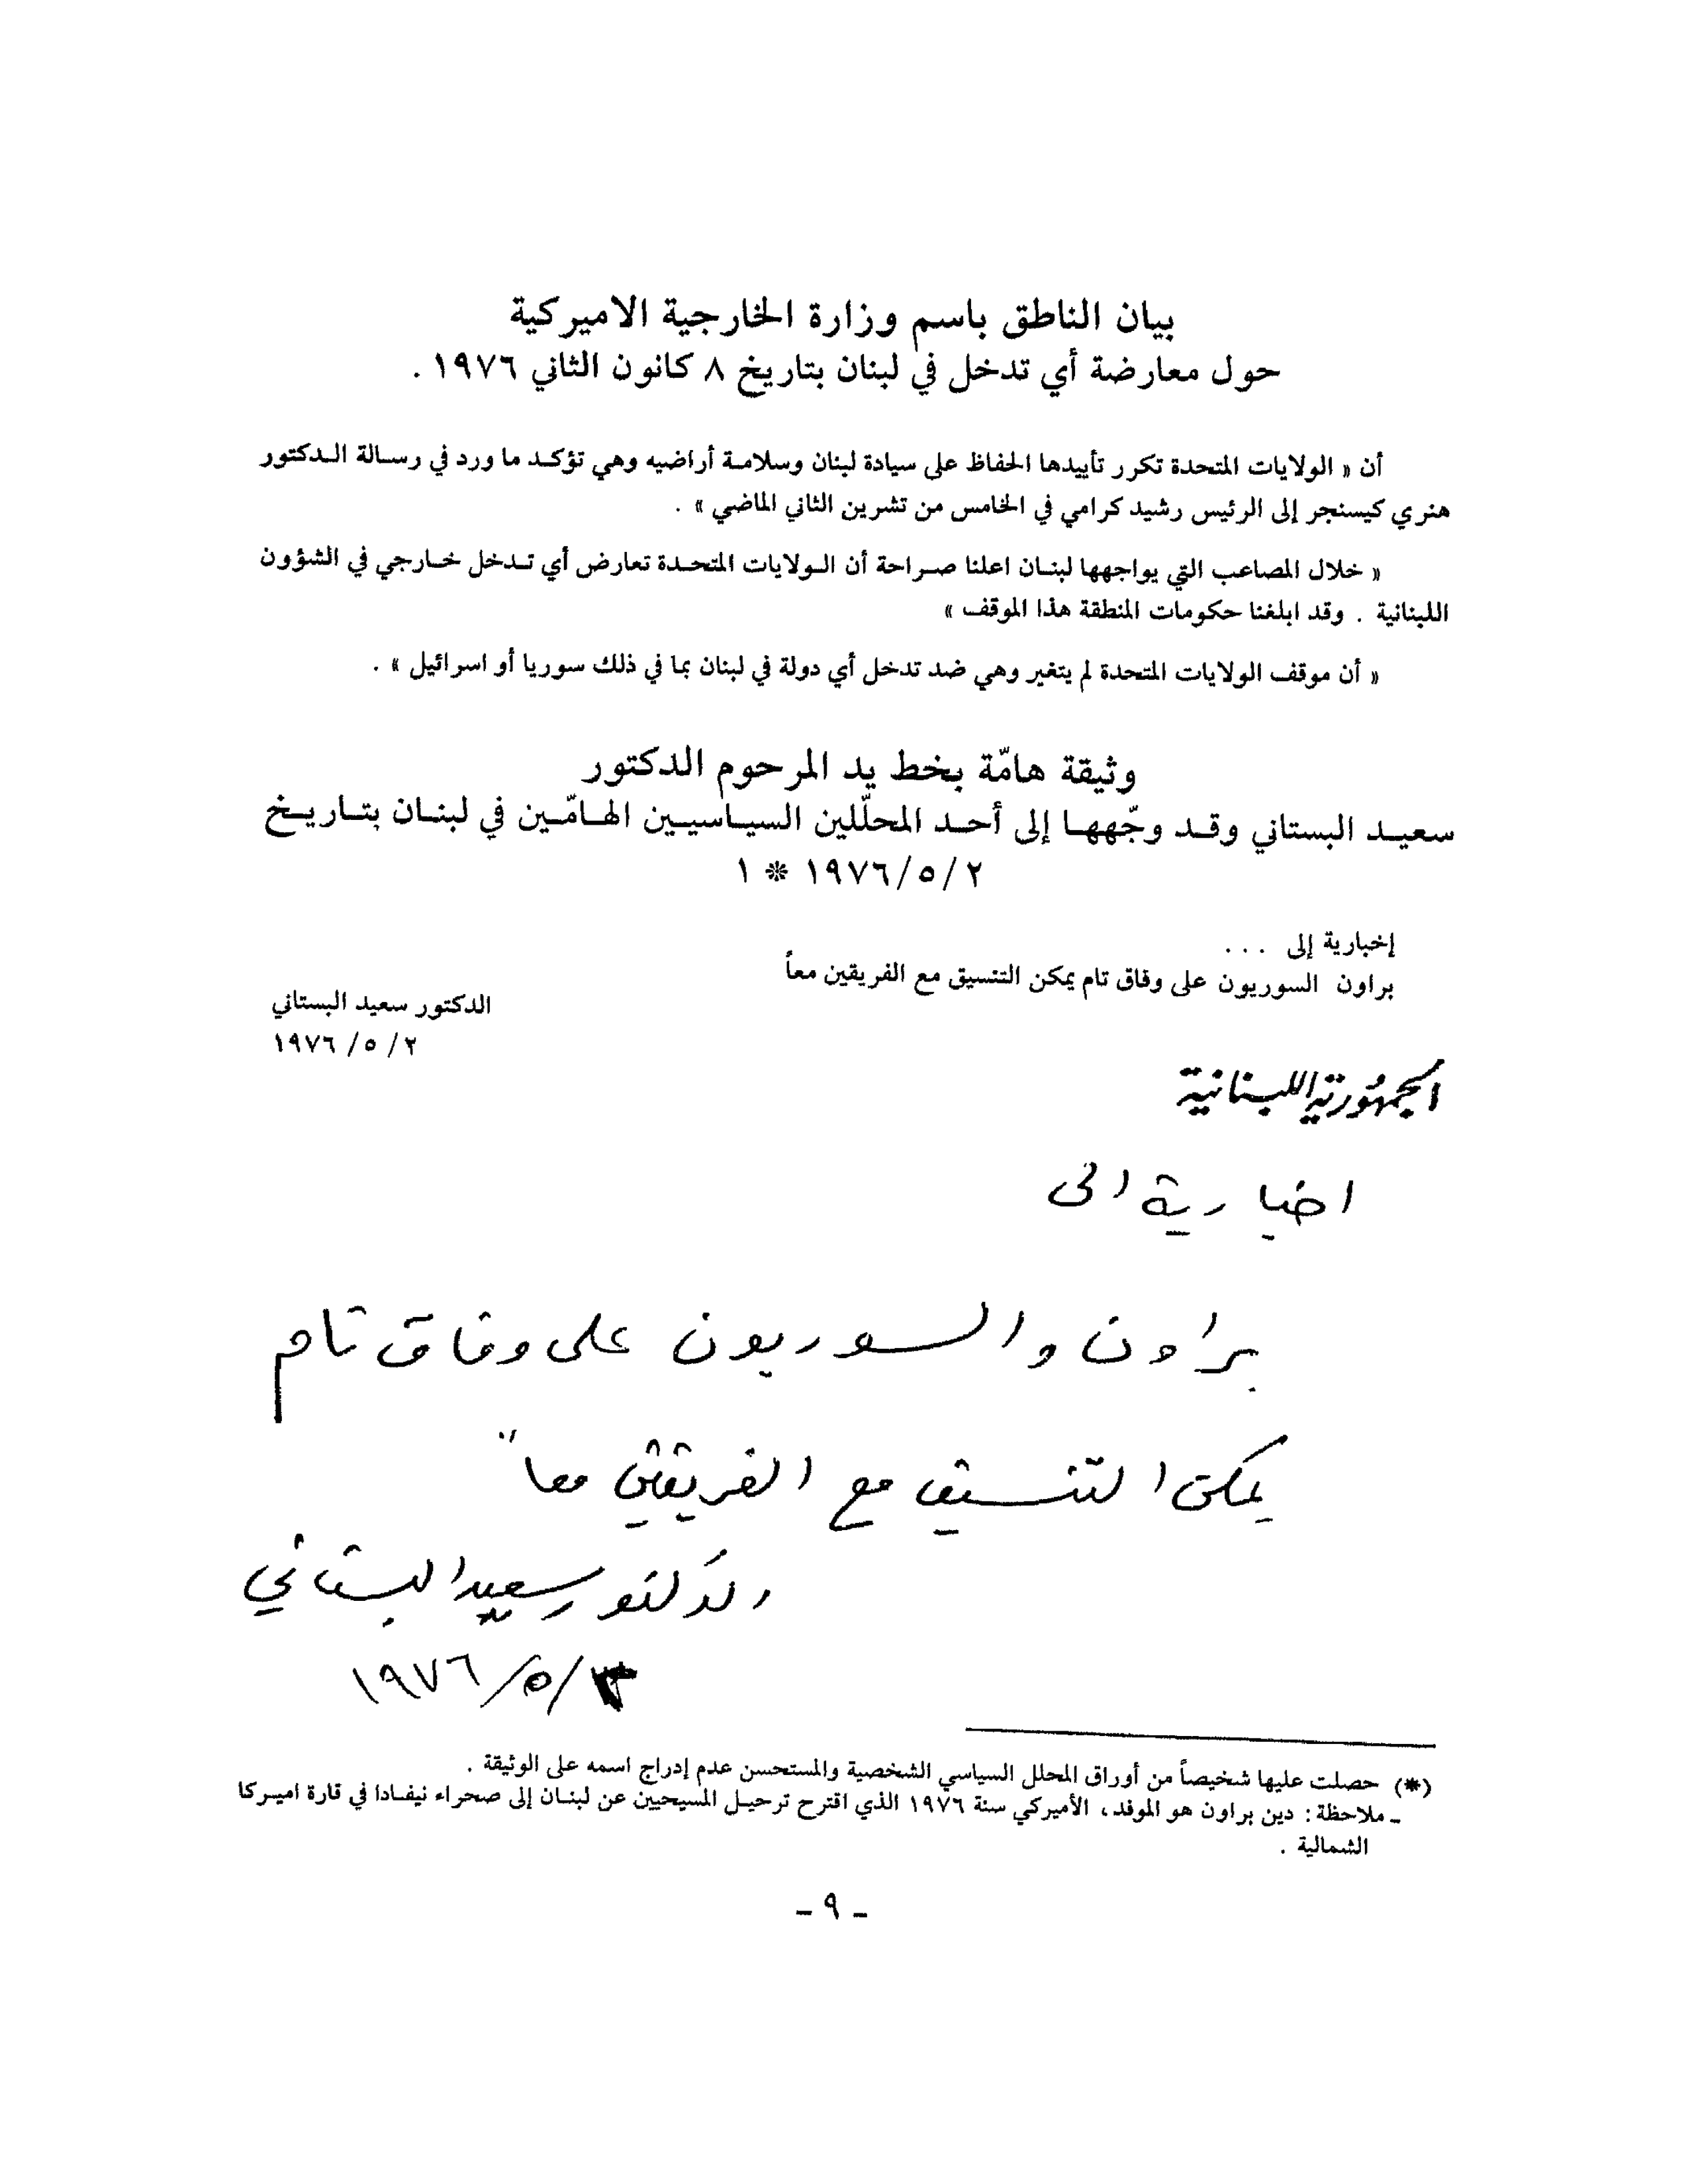 بيان الناطق باسم وزارة الخارجية الاميركية
حول معارضة أي تدخل في لبنان بتاريخ ٨ كانون الثاني ١٩٧٦ .
أن « الولايات المتحدة تكرر تأييدها الحفاظ على سيادة لبنان وسلامة أراضيه وهي تؤكد ما ورد في رسالة الدكتور
هنري كيسنجر إلى الرئيس رشيد كرامي في الخامس من تشرين الثاني الماضي » .
« خلال المصاعب التي يواجهها لبنان اعلنا صراحة أن الولايات المتحدة تعارض أي تدخل خارجي في الشؤون
اللبنانية . وقد ابلغنا حكومات المنطقة هذا الموقف »
« أن موقف الولايات المتحدة لم يتغير وهي ضد تدخل أي دولة في لبنان بما في ذلك سوريا أو اسرائيل » .
وثيقة هامّة بخط يد المرحوم الدكتور
سعيد البستاني وقد وجّهها إلى أحد المحلّلين السياسيين الهامّين في لبنان بتاريخ
٢/٥/١٩٧٦ * ١
إخبارية إلى . . .
براون السوريون على وفاق تام يمكن التنسيق مع الفريقين معاً
الدكتور سعيد البستاني
٢/٥/١٩٧٦
الجمهورية اللبنانية
اخبارية الى
براون والسوريون على وفاق تام
يمكن التنسيق مع الفريقين معاً
الدكتور سعيد البستاني
/٥/١٩٧٦
(*) حصلت عليها شخيصاً من أوراق المحلل السياسي الشخصية والمستحسن عدم إدراج اسمه على الوثيقة .
ـ ملاحظة : دين براون هو الموفد، الأميركي سنة ١٩٧٦ الذي اقترح ترحيل المسيحيين عن لبنان إلى صحراء نيفادا في قارة اميركا
الشمالية .
ـ ٩ ـ